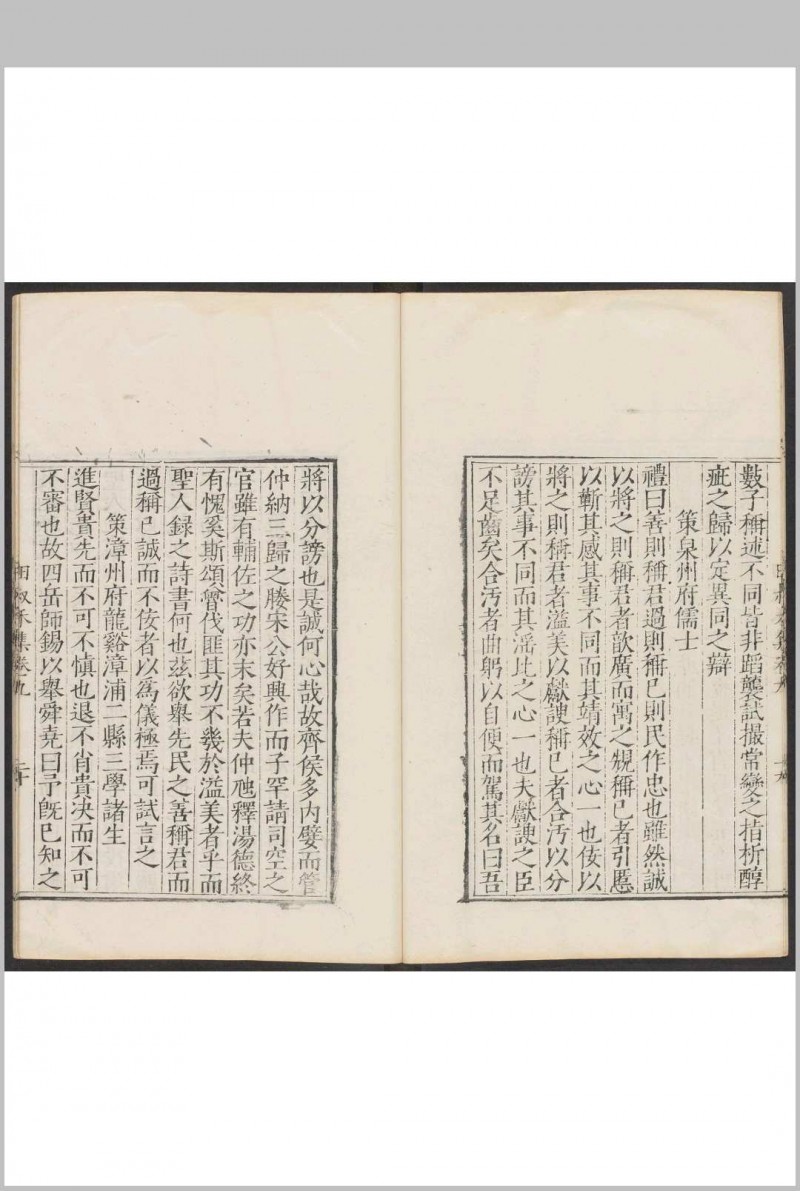 數子稱述不同皆非蹈襲試撮常變之指析醇
疵之歸以定異同之辯
策泉州府儒士
禮曰善則稱君過則稱已則民作忠也雖然誠
以將之則稱君者歆廣而寓之規稱已者引慝
以蘄其感其事不同而其靖效之心一也佞以
將之則稱君者溢美以獻諛稱已者合汚以分
謗其事不同而其滛比之心一也夫獻諛之臣
不足齒矣合汚者曲躬以自便而駕其名曰吾
將以分謗也是誠何心哉故齊侯多内嬖而管
仲納三歸之媵宋公好興作而子罕請司空之
官雖有輔佐之功亦末矣若夫仲虺釋湯德終
有愧奚斯頌魯伐匪其功不幾於溢美者乎而
聖人録之詩書何也兹欲舉先民之善稱君而
過稱已誠而不佞者以爲儀極焉可試言之
策漳州府龍谿漳浦二縣三學諸生
進賢貴先而不可不慎也退不肖貴决而不可
不審也故四岳師錫以舉舜堯曰予旣已知之
田叔禾集卷九
二十